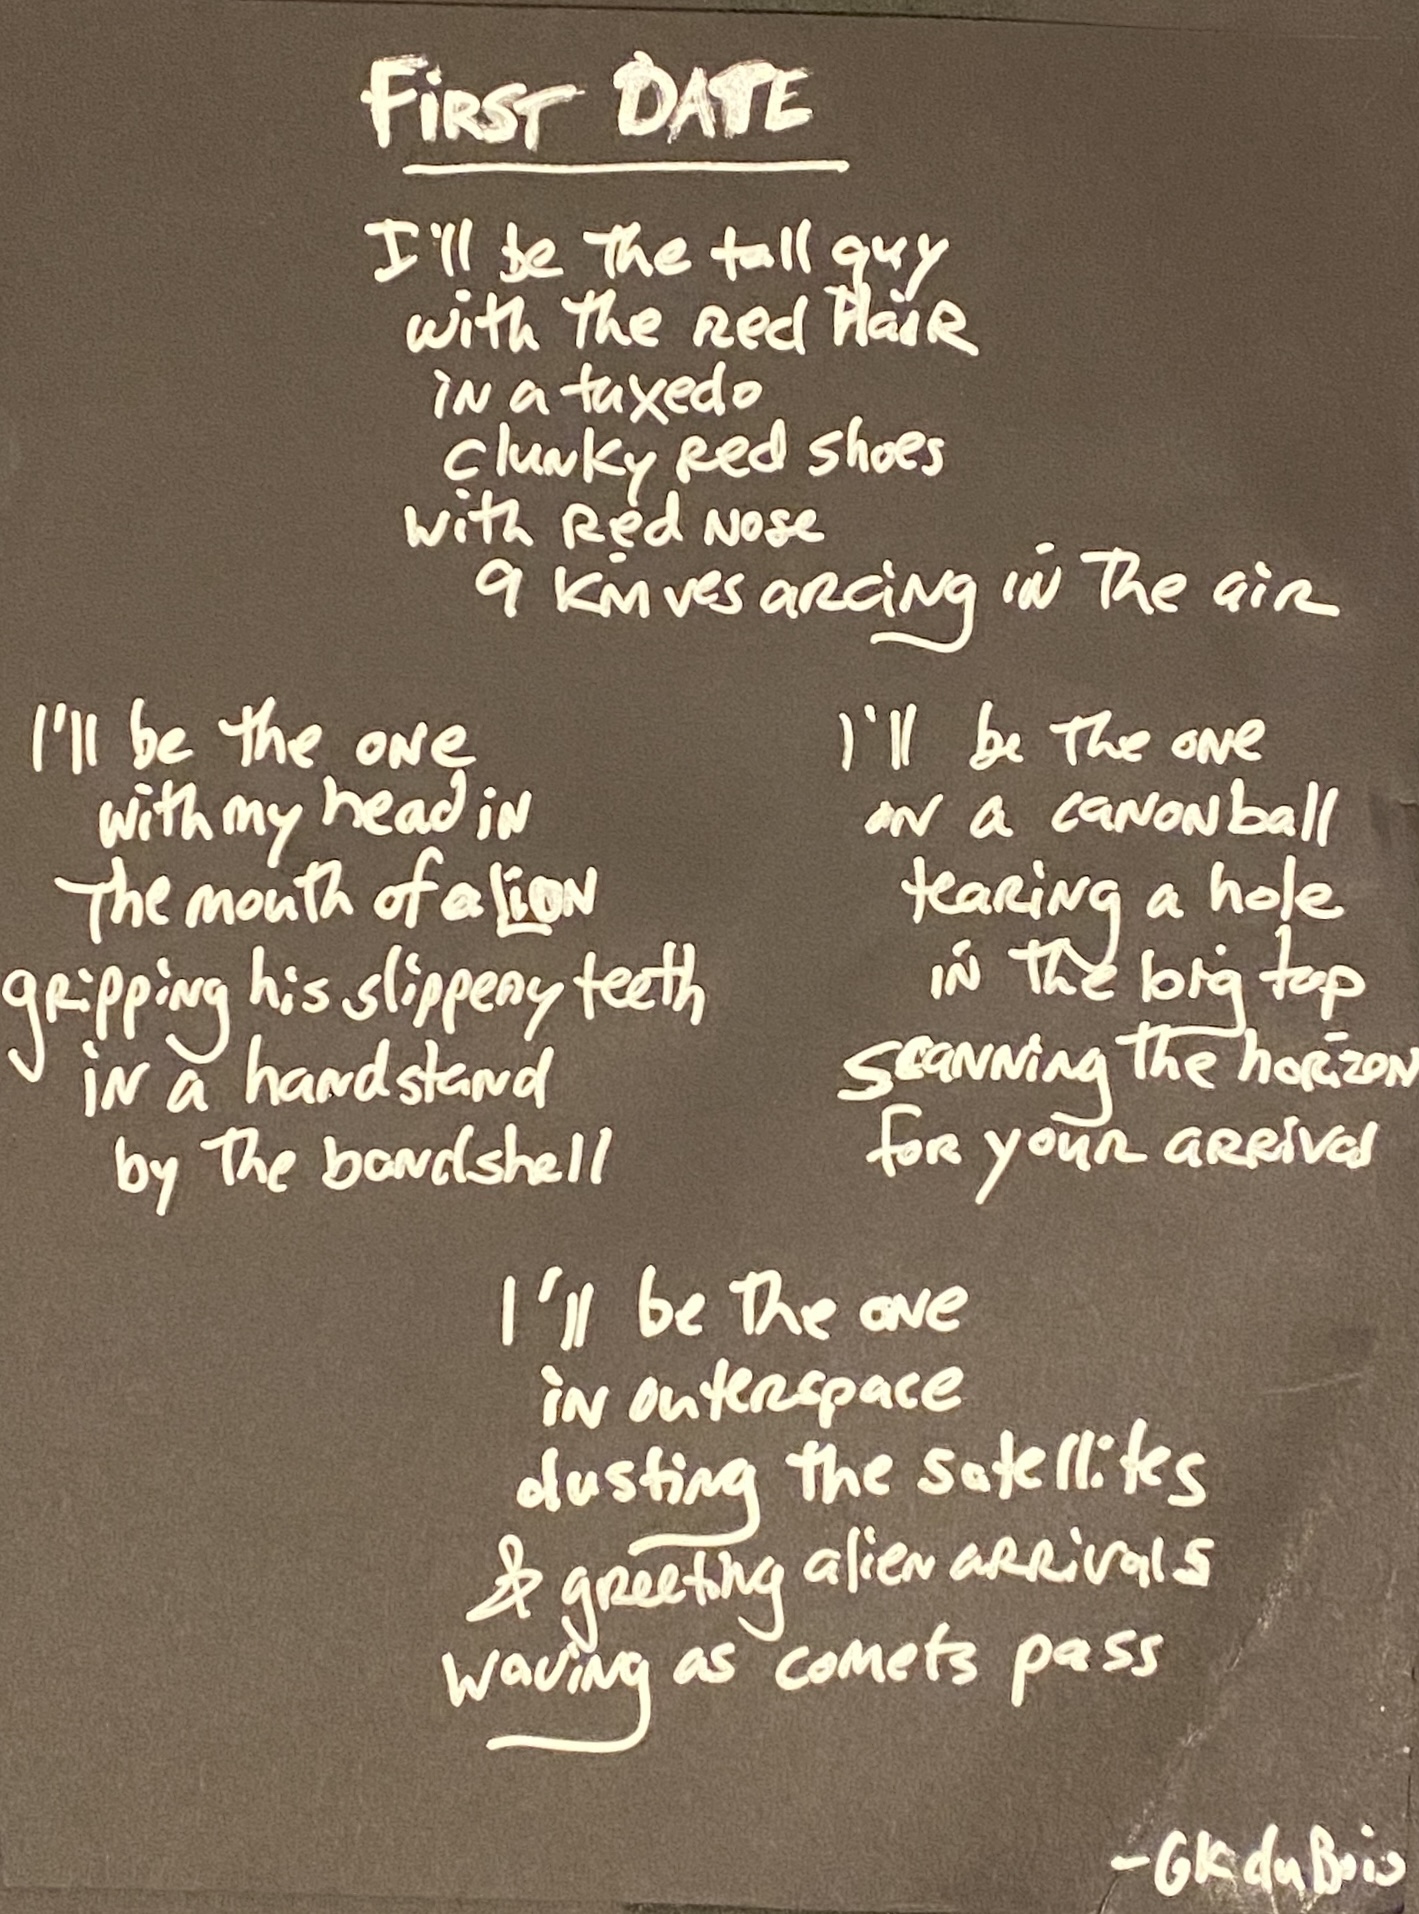 FIRST DATE
I'll be the tall guy
with the red HaiR
in a tuxedo
clunky Red shoes
with Red Nose
9 knives arcing in the air
I'll be the one
with my head in
The mouth of a Lion
gripping his slippery teeth
in a handstand
by the bandshell
I'll be the one
on a canonball
tearing a hole
in the big top
scanning the horizon
for your arrival
I'll be the one
in outerspace
dusting the satellites
& greeting alien arrivals
waving as comets pass
-GK du Bois